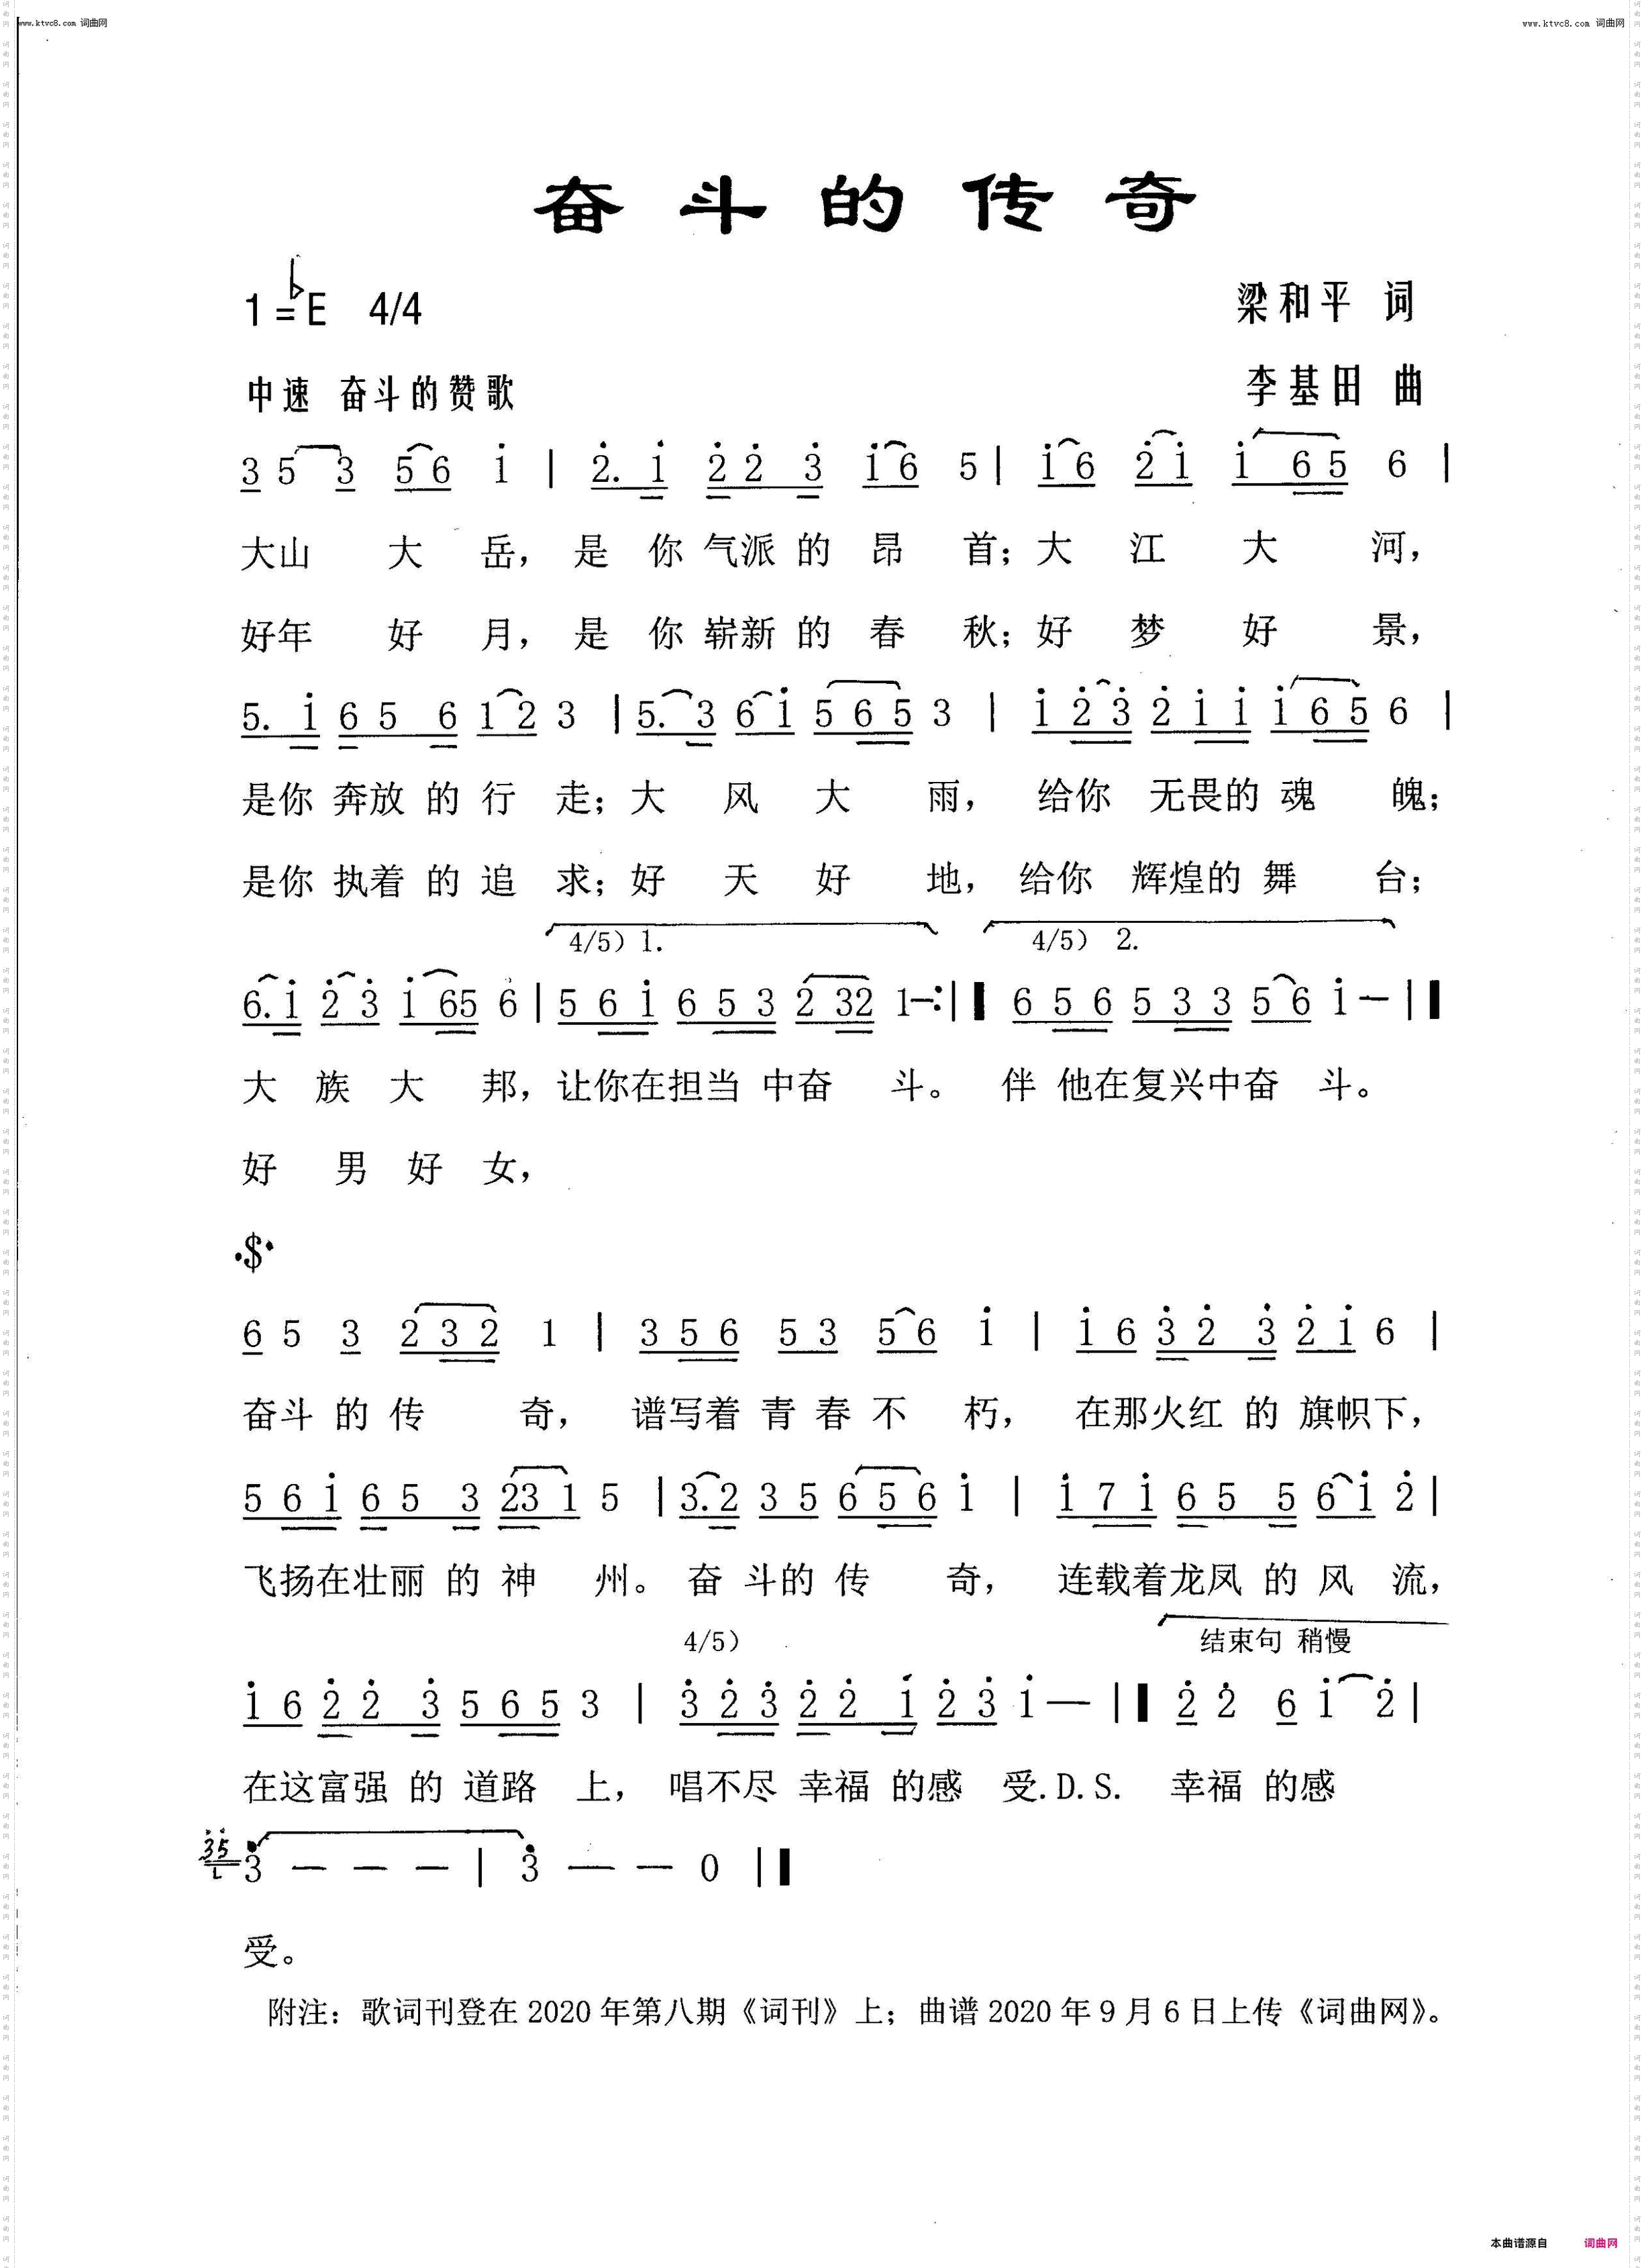 www.ktvc8.com 词曲网 www.ktvc8.com 词曲网
奋斗的传奇
1=♭E 4/4 梁和平 词
中速 奋斗的赞歌 李基田 曲
3 5 3 5 6 i | 2. i 2 2 3 i 6 5 | i 6 2 i i 6 5 6 |
大山 大 岳，是 你 气派 的 昂 首；大 江 大 河，
好年 好 月，是 你 崭新 的 春 秋；好 梦 好 景，
5. i 6 5 6 1 2 3 | 5. 3 6 i 5 6 5 3 | i 2 3 2 i i i 6 5 6 |
是你 奔放 的 行 走；大 风 大 雨， 给你 无畏的 魂 魄；
是你 执着 的 追 求；好 天 好 地， 给你 辉煌的 舞 台；
4/5) 1. 4/5) 2.
6. i 2 3 i 65 6 | 5 6 i 6 5 3 2 32 1 — :| 6 5 6 5 3 3 5 6 i — ‖
大 族 大 邦，让你在担当 中奋 斗。 伴 他在复兴中奋 斗。
好 男 好 女，
𝄋
6 5 3 2 3 2 1 | 3 5 6 5 3 5 6 i | i 6 3 2 3 2 i 6 |
奋斗 的 传 奇， 谱写着 青 春 不 朽， 在那火红 的 旗帜下，
5 6 i 6 5 3 23 1 5 | 3. 2 3 5 6 5 6 i | i 7 i 6 5 5 6 i 2 |
飞扬在壮丽 的 神 州。 奋 斗的 传 奇， 连载着龙凤 的 风 流，
4/5) 结束句 稍慢
i 6 2 2 3 5 6 5 3 | 3 2 3 2 2 i 2 3 i — ‖ 2 2 6 i 2 |
在这富强 的 道路 上， 唱不尽 幸福 的感 受.D.S. 幸福 的感
35 3 — — — | 3 — — 0 ‖
受。
附注：歌词刊登在 2020 年第八期《词刊》上；曲谱 2020 年 9 月 6 日上传《词曲网》。
本曲谱源自 词曲网